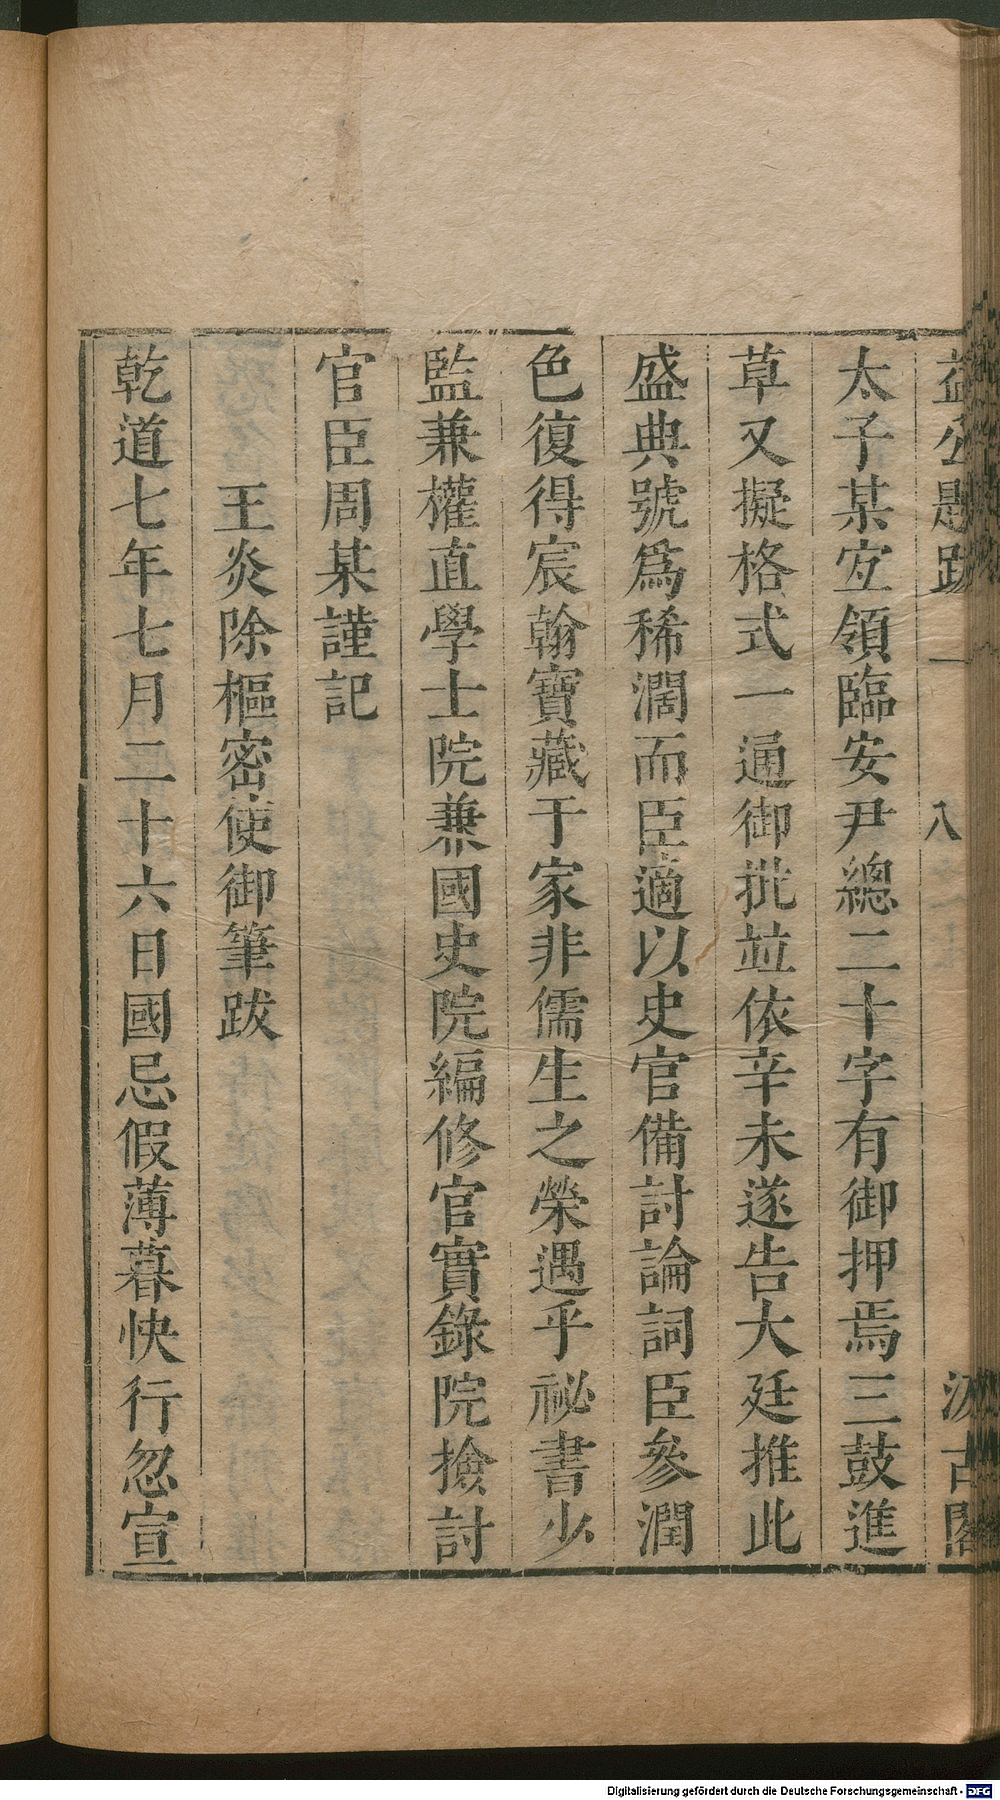 益公題跋 一 八 汲古閣
太子某宜領臨安尹總二十字有御押焉三鼓進
草又擬格式一通御批竝依辛未遂告大廷推此
盛典號爲稀濶而臣適以史官備討論詞臣參潤
色復得宸翰寶藏于家非儒生之榮遇乎祕書少
監兼權直學士院兼國史院編修官實錄院撿討
官臣周某謹記
王炎除樞密使御筆跋
乾道七年七月二十六日國忌假薄暮快行忽宣
Digitalisierung gefördert durch die Deutsche Forschungsgemeinschaft - DFG